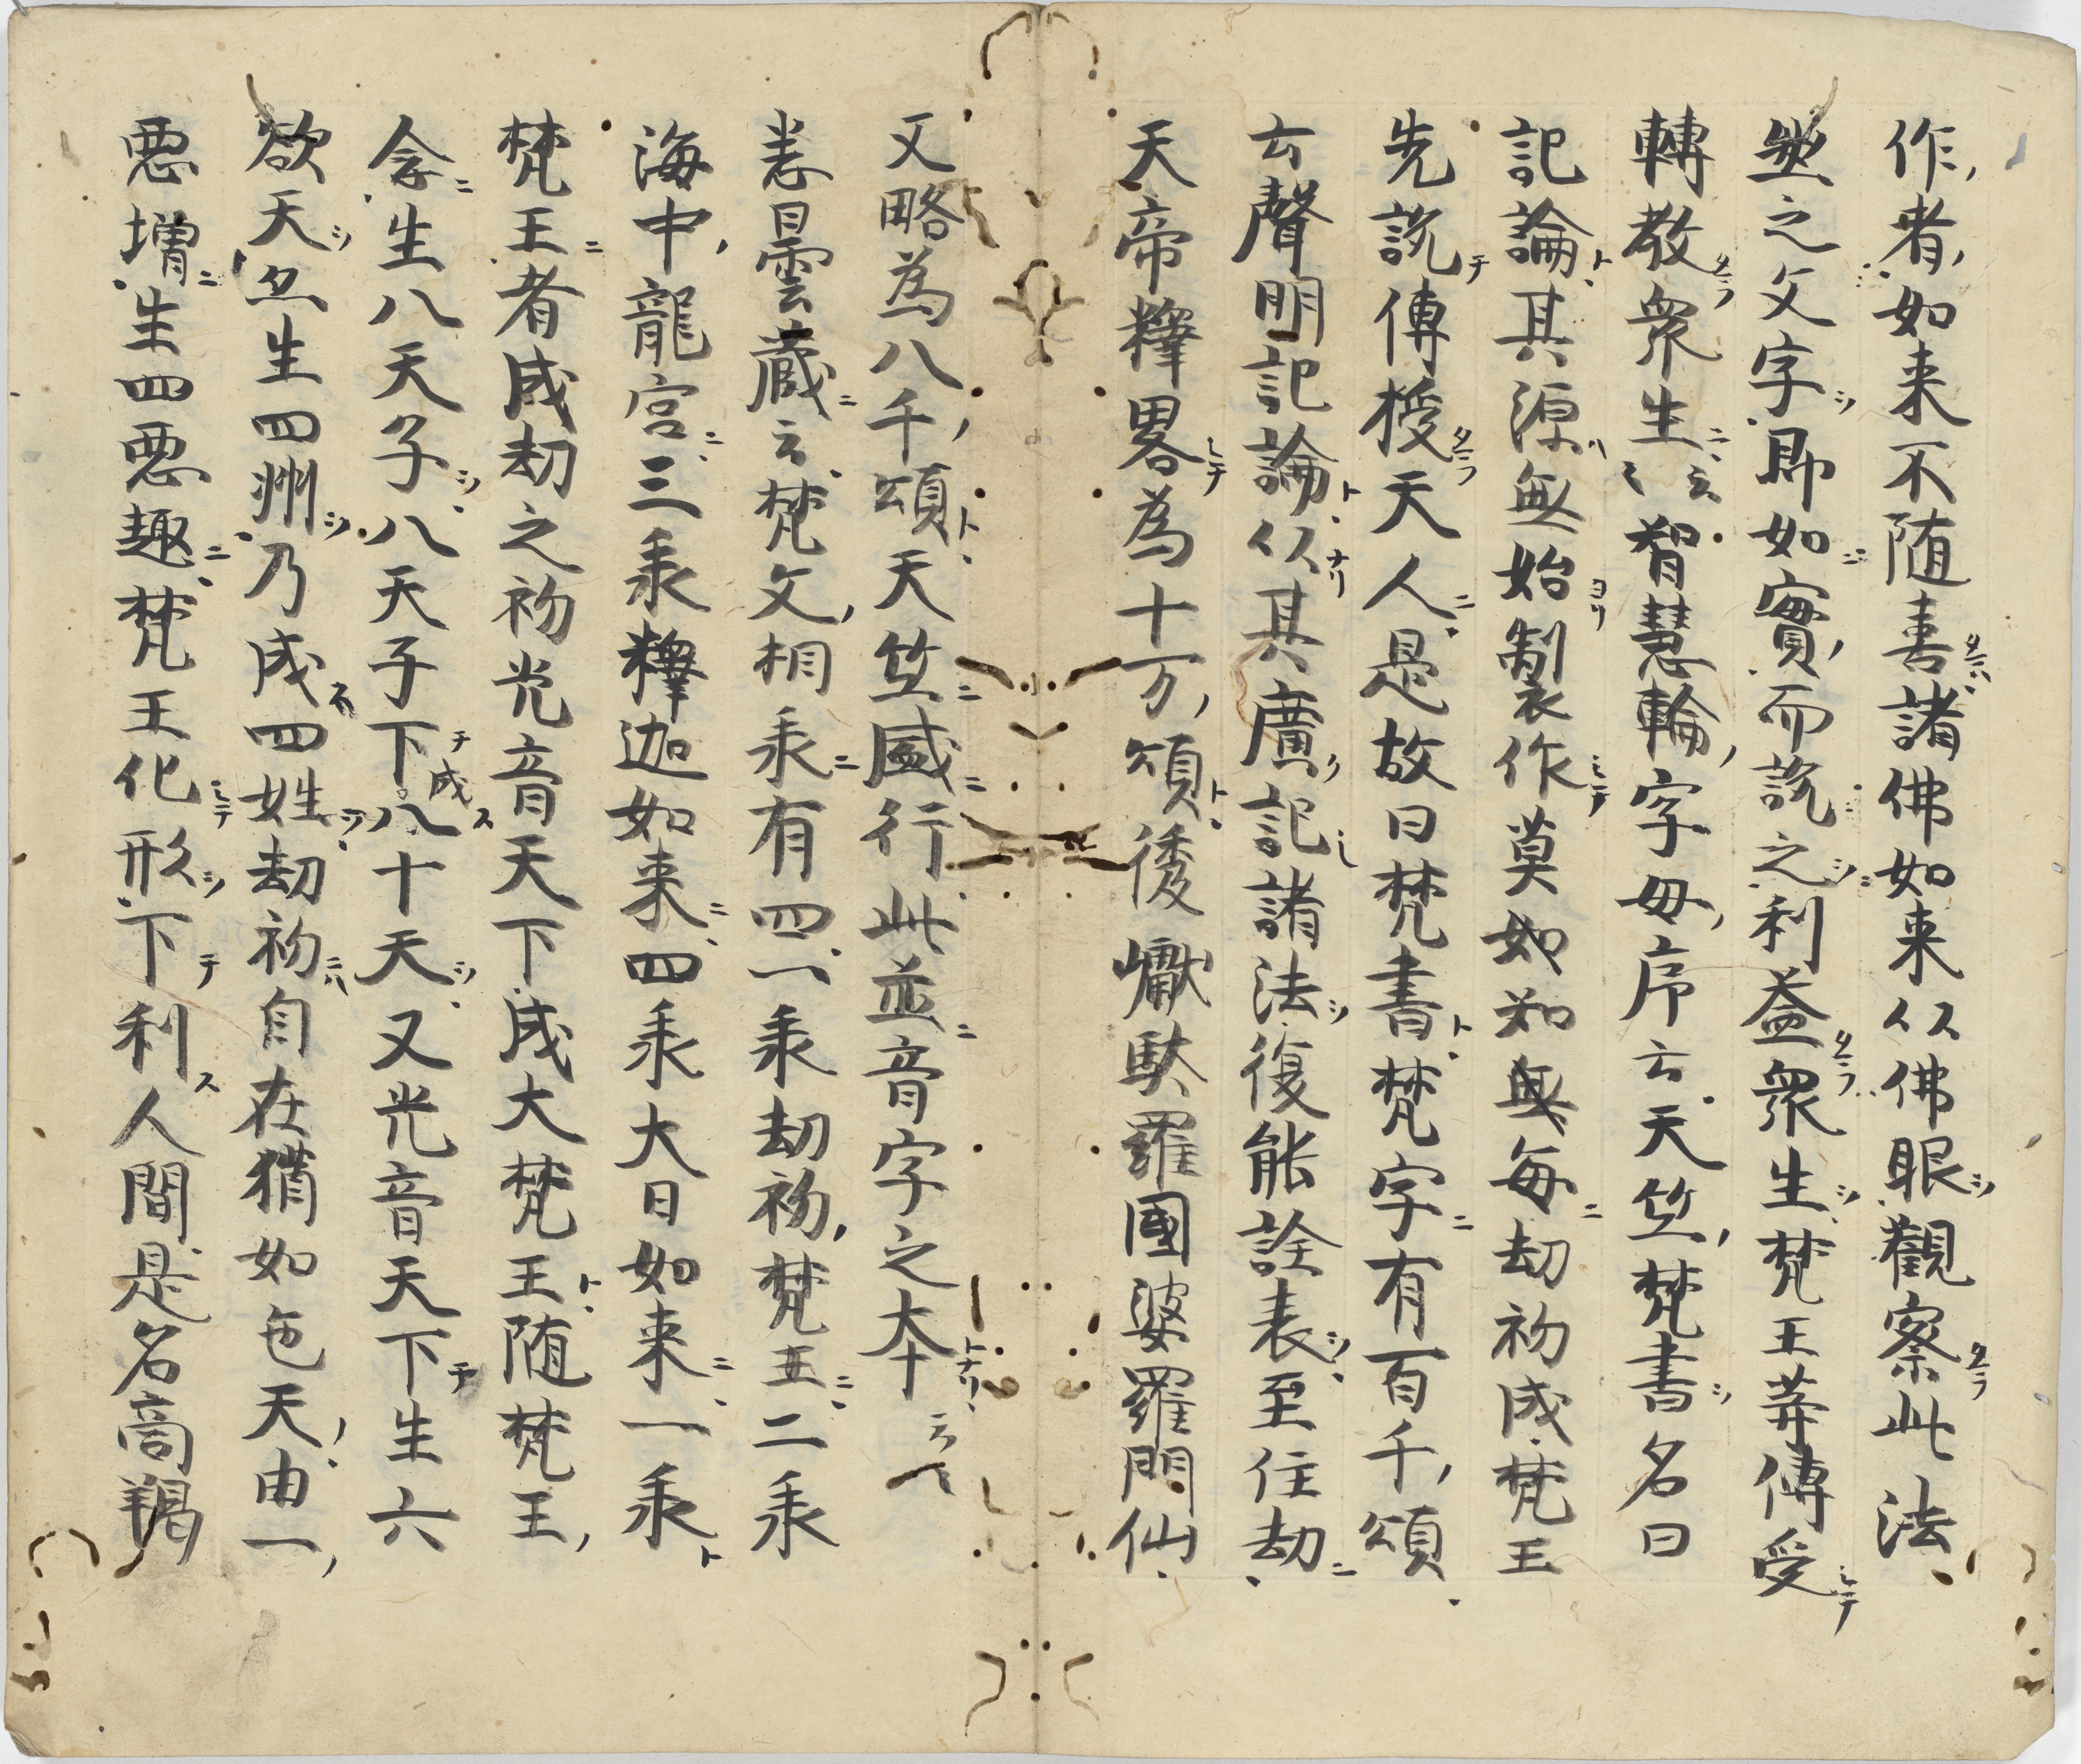 作者如来不随喜諸佛如来以佛眼觀察此法
然之文字即如實而説之利益衆生梵王等傳受
轉教衆生云〻智慧輪字母序云天竺梵書名曰
記論其源無始製作莫知知與每劫初成梵王
先説傳授天人是故曰梵書梵字有百千頌
云聲明記論以其廣記諸法復能詮表至住劫
天帝釋畧為十万頌後巘馱羅國婆羅門仙
又略為八千頌天竺盛行此並音字之本云〻
悉曇藏云梵文相承有四一承劫初梵王二承
海中龍宮三承釋迦如来四承大日如来一承
梵王者成劫之初光音天下成大梵王随梵王
念生八天子八天子下成八十天又光音天下生六
欲天亦生四州乃成四姓劫初自在猶如色天由一
悪増生四悪趣梵王化形下利人間是名商羯